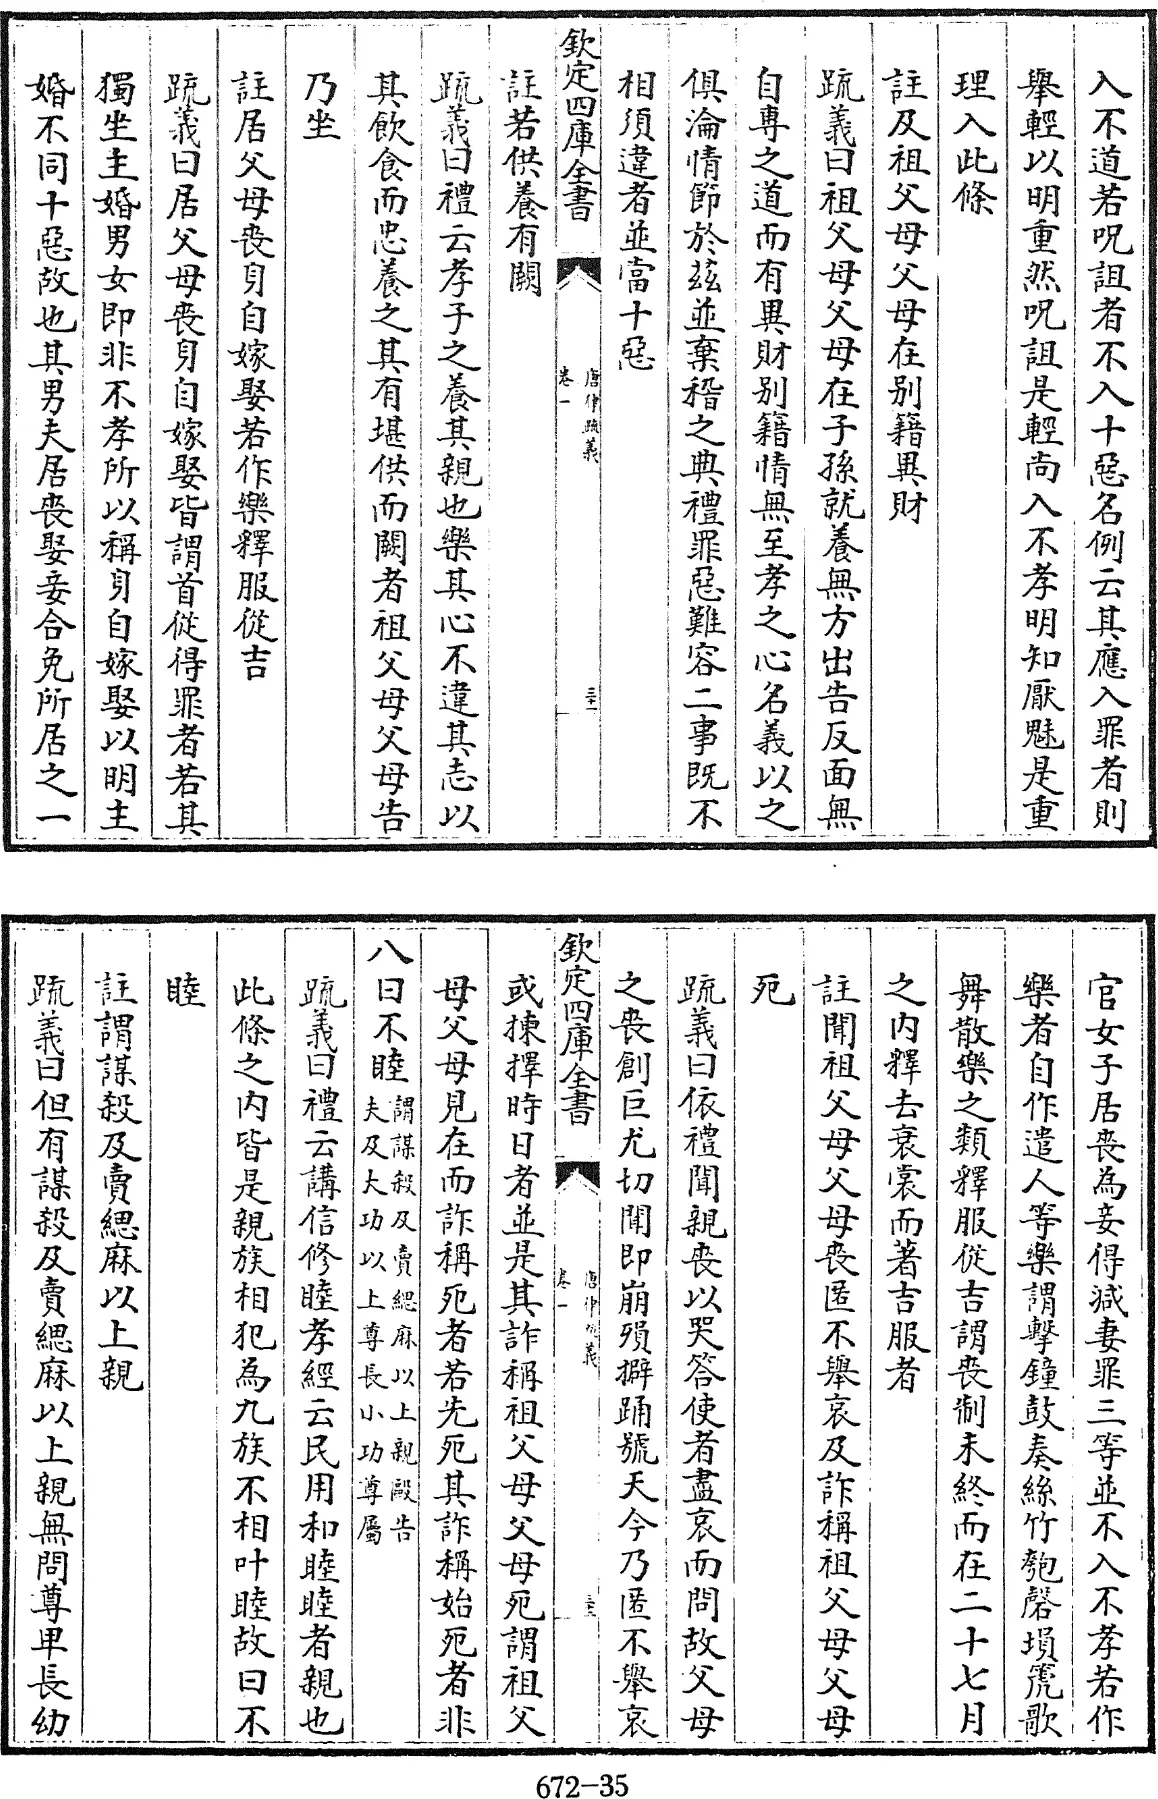 入不道若呪詛者不入十惡名例云其應入罪者則
舉輕以明重然呪詛是輕尚入不孝明知厭魅是重
理入此條
註及祖父母父母在别籍異財
疏義曰祖父母父母在子孫就養無方出告反面無
自專之道而有異財别籍情無至孝之心名義以之
俱淪情節於兹並棄稽之典禮罪惡難容二事既不
相須違者並當十惡
欽定四庫全書
唐律疏義
卷一
註若供養有闕
疏義曰禮云孝子之養其親也樂其心不違其志以
其飲食而忠養之其有堪供而闕者祖父母父母告
乃坐
註居父母喪身自嫁娶若作樂釋服從吉
疏義曰居父母喪身自嫁娶皆謂首從得罪者若其
獨坐主婚男女即非不孝所以稱身自嫁娶以明主
婚不同十惡故也其男夫居喪娶妾合免所居之一
官女子居喪為妾得減妻罪三等並不入不孝若作
樂者自作遣人等樂謂擊鐘鼓奏絲竹匏磬塤箎歌
舞散樂之類釋服從吉謂喪制未終而在二十七月
之内釋去衰裳而著吉服者
註聞祖父母父母喪匿不舉哀及詐稱祖父母父母
死
疏義曰依禮聞親喪以哭答使者盡哀而問故父母
之喪創巨尤切聞即崩殞擗踊號天今乃匿不舉哀
欽定四庫全書
唐律疏義
卷一
或揀擇時日者並是其詐稱祖父母父母死謂祖父
母父母見在而詐稱死者若先死其詐稱始死者非
八曰不睦謂謀殺及賣緦麻以上親毆告
夫及大功以上尊長小功尊屬
疏義曰禮云講信修睦孝經云民用和睦睦者親也
此條之内皆是親族相犯為九族不相叶睦故曰不
睦
註謂謀殺及賣緦麻以上親
疏義曰但有謀殺及賣緦麻以上親無問尊卑長幼
672-35